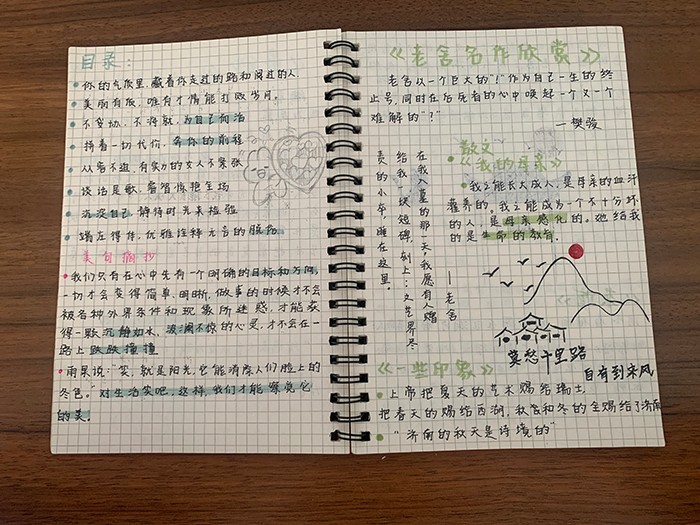 目录：
你的气质里，藏着你走过的路和阅过的人
美丽有限，唯有才情能打败岁月。
不妥协，不将就，为自己而活
拼着一切代价，奔你的前程
从容不迫，有实力的女人不紧张
谈话是歌，睿智惊艳全场
沉淀自己 静待时光来检验
踏石得伴，优雅诠释光音的
美句摘抄
我们只有在心中先有一个明确的目标和方向，
一切才会变得简单、明晰，做事的时候才不会
被各种外界条件和现象所迷惑，才能获
得一颗沉静如水，波澜不惊的心灵，才不会在一
路上跌跌撞撞
雨果说："笑，就是阳光，它能消除人们脸上的
冬色。"对生活笑吧，这样，我们才能察觉它
的美。
《老舍名作欣赏》
老舍以一个巨大的"！"作为自己一生的终
止号，同时在后死者的心中唤起一个又一个
难解的"？"
—樊骏
在我入墓的那一天，我愿有人赠
给我一块短碑，刻上：文艺界尽
责的小卒，睡在这里。
——老舍
散文
《我的母亲》
我之能长大成人，是母亲的血汗
灌养的。我之能成为一个不十分坏
的人，是母亲感化的。她给我
的是生命的教育。
莫愁千里路
自有到来风
《一些印象》
上帝把夏天的艺术赐给瑞士，
把春天的赐给西湖，秋和冬的全赐给了济南
"济南的秋天是诗境的"